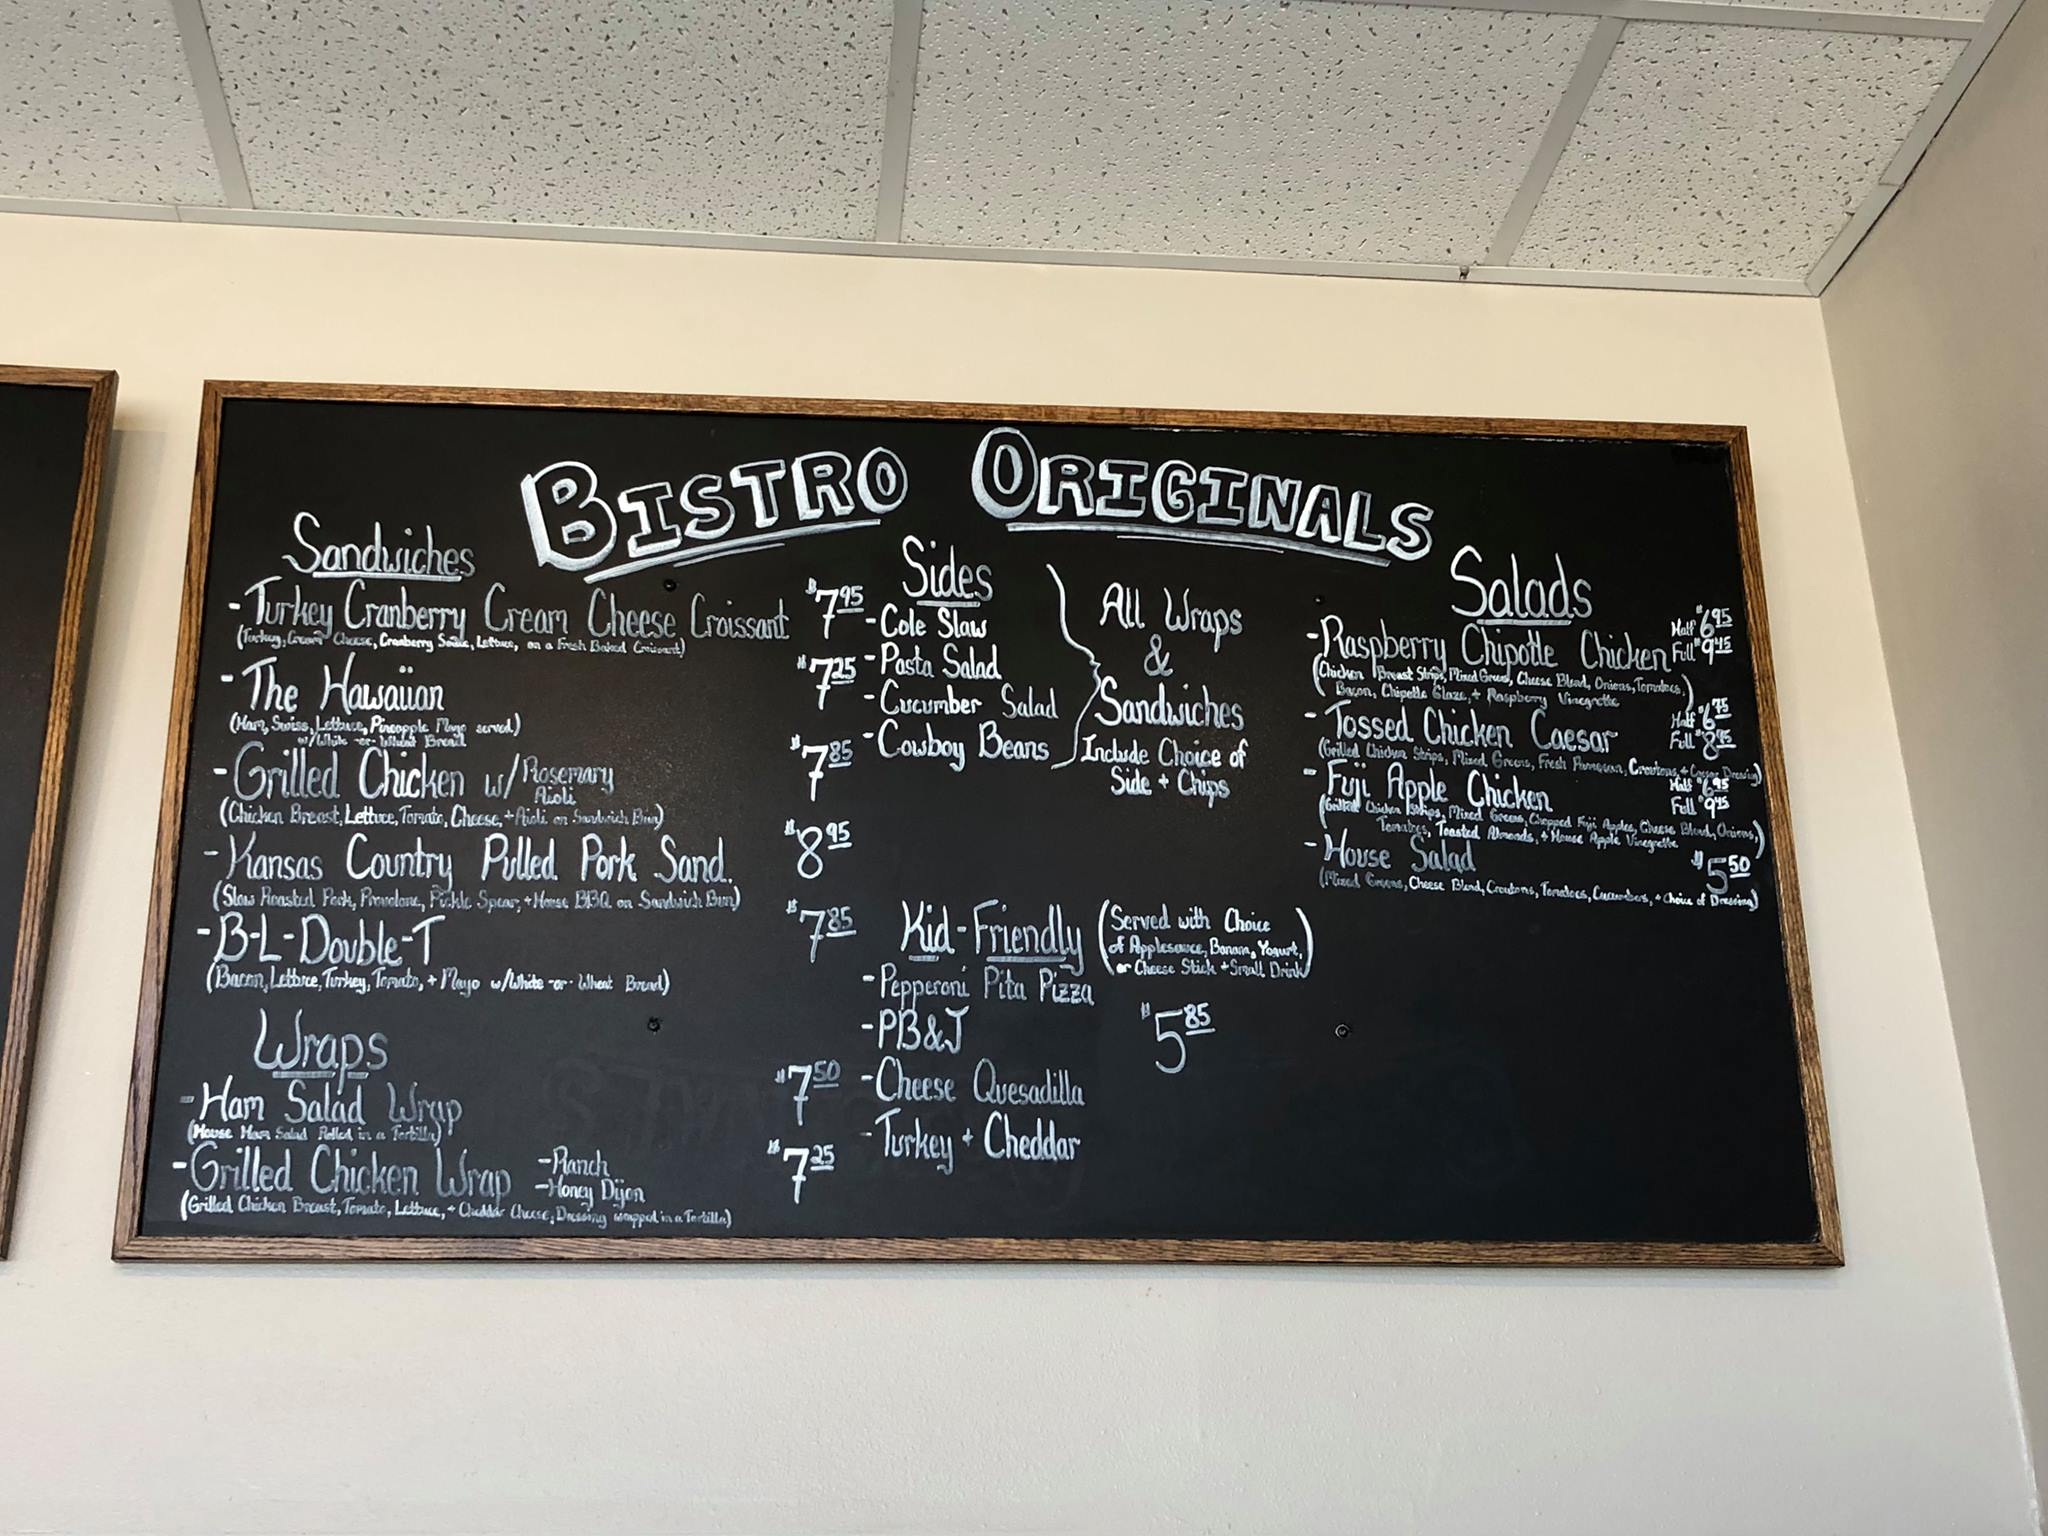 BISTRO ORIGINALS
Sandwiches
- Turkey Cranberry Cream Cheese Croissant $7.95
(Turkey, Cream Cheese, Cranberry Sauce, Lettuce, on a Fresh Baked Croissant)
- The Hawaiian $7.25
(Ham, Swiss, Lettuce, Pineapple Mayo served)
w/White -or- Wheat Bread
- Grilled Chicken w/ Rosemary Aioli $7.85
(Chicken Breast, Lettuce, Tomato, Cheese, + Aioli on Sandwich Bun)
- Kansas Country Pulled Pork Sand. $8.95
(Slow Roasted Pork, Provolone, Pickle Spear, + House BBQ on Sandwich Bun)
- B-L-Double-T $7.85
(Bacon, Lettuce, Turkey, Tomato, + Mayo w/White -or- Wheat Bread)
Wraps
- Ham Salad Wrap $7.50
(House Ham Salad Rolled in a Tortilla)
- Grilled Chicken Wrap - Ranch $7.25
- Honey Dijon
(Grilled Chicken Breast, Tomato, Lettuce, + Cheddar Cheese, Dressing wrapped in a Tortilla)
Sides
- Cole Slaw
- Pasta Salad
- Cucumber Salad
- Cowboy Beans
All Wraps
&
Sandwiches
Include Choice of
Side + Chips
Kid-Friendly
(Served with Choice
of Applesauce, Banana, Yogurt,
or Cheese Stick + Small Drink)
- Pepperoni Pita Pizza
- PB&J
$5.85
- Cheese Quesadilla
- Turkey + Cheddar
Salads
- Raspberry Chipotle Chicken Half $6.95
Full $9.45
(Chicken Breast Strips, Mixed Greens, Cheese Blend, Onions, Tomatoes,
Bacon, Chipotle Glaze, + Raspberry Vinegrette)
- Tossed Chicken Caesar Half $6.75
Full $8.95
(Grilled Chicken Strips, Mixed Greens, Fresh Parmesan, Croutons, + Caesar Dressing)
- Fuji Apple Chicken Half $6.95
Full $9.45
(Grilled Chicken Strips, Mixed Greens, Chopped Fuji Apples, Cheese Blend, Onions,
Tomatoes, Toasted Almonds, + House Apple Vinegrette)
- House Salad $5.50
(Mixed Greens, Cheese Blend, Croutons, Tomatoes, Cucumbers, + Choice of Dressing)